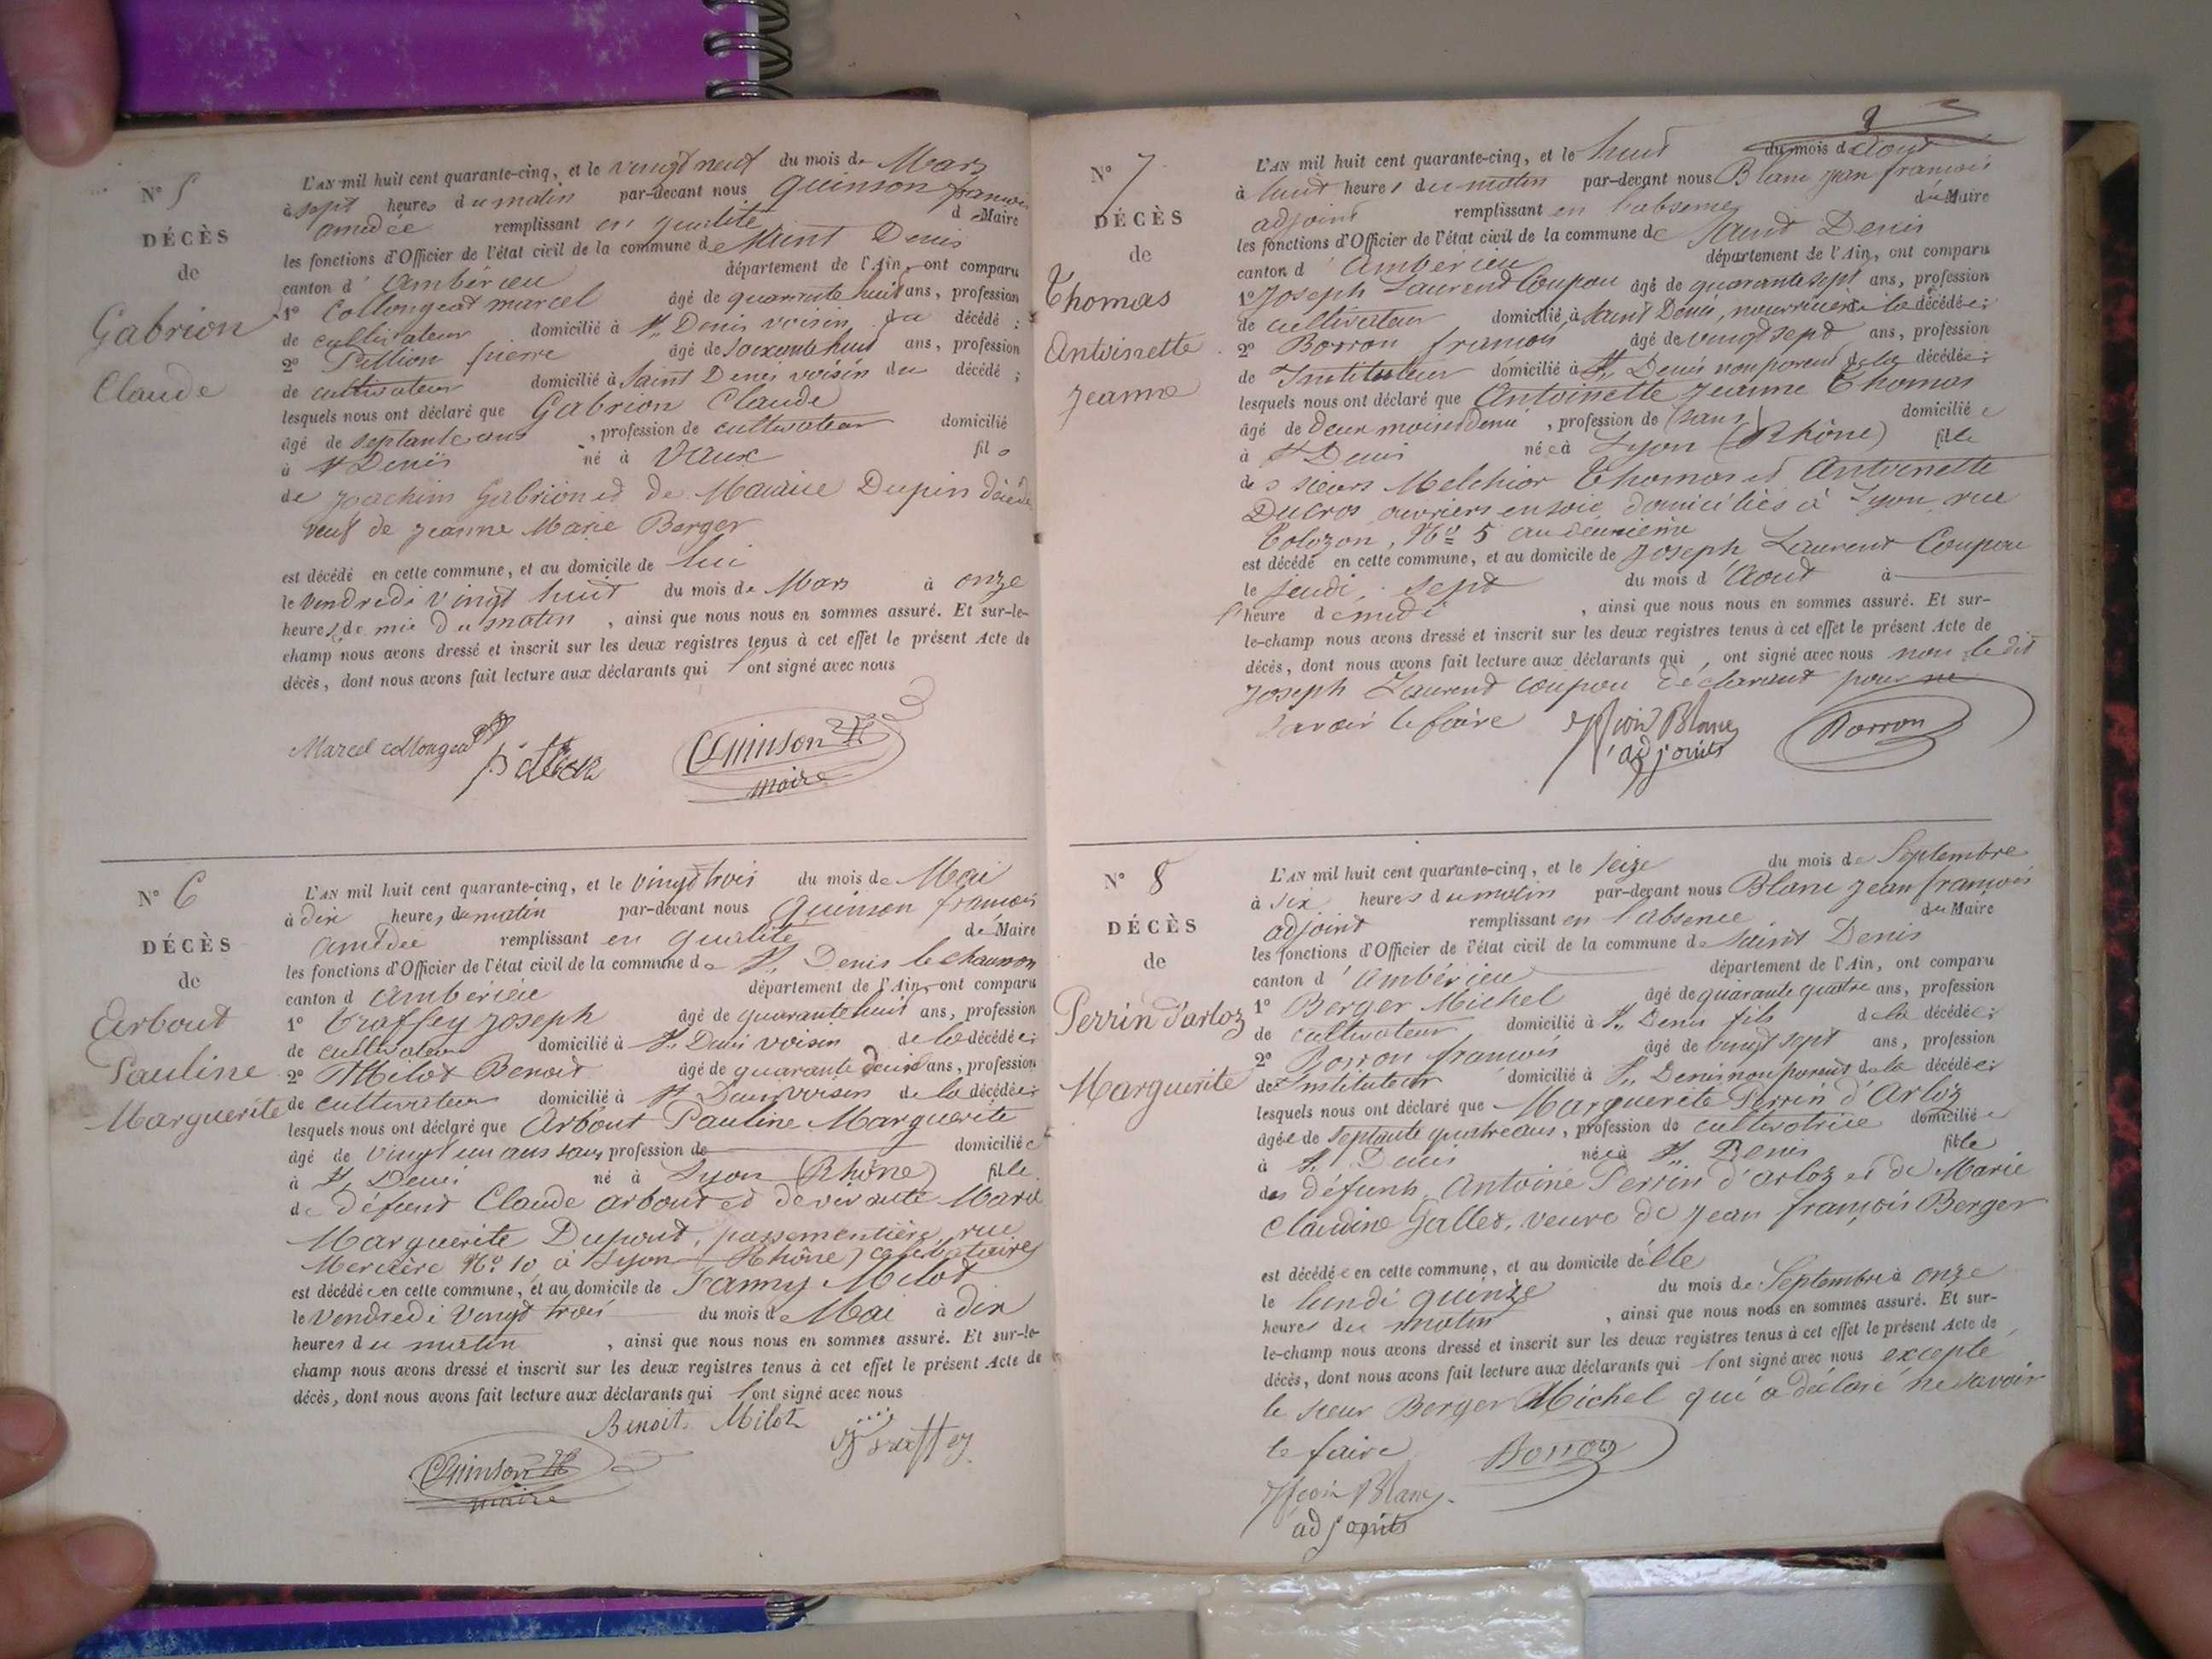 N° 5
DÉCÈS
de
Gabrion
Claude
L'AN mil huit cent quarante-cinq, et le vingt neuf du mois de Mars
à sept heures du matin par-devant nous Quinson françois
amédée remplissant en qualité d Maire
les fonctions d'Officier de l'état civil de la commune de Saint Denis
canton d' Ambérieu département de l'Ain, ont comparu
1° Collongeat marcel âgé de quarante huit ans, profession
de cultivateur domicilié à St Denis voisin du décédé ;
2° Pittion pierre âgé de soixante huit ans, profession
de cultivateur domicilié à Saint Denis voisin du décédé ;
lesquels nous ont déclaré que Gabrion Claude
âgé de septante ans , profession de cultivateur domicilié
à St Denis né à Vaux fils
de Joachim Gabrion et de Dupin
veuf de Jeanne Marie Berger
est décédé en cette commune, et au domicile de lui
le Vendredi vingt huit du mois de Mars à onze
heures de du matin , ainsi que nous nous en sommes assuré. Et sur-le-
champ nous avons dressé et inscrit sur les deux registres tenus à cet effet le présent Acte de
décès, dont nous avons fait lecture aux déclarants qui l'ont signé avec nous
Marcel collongeat
Quinson
maire
N° 6
DÉCÈS
de
Arbout
Pauline
Marguerite
L'AN mil huit cent quarante-cinq, et le vingt trois du mois de Mai
à dix heures du matin par-devant nous Quinson françois
Amédée remplissant en qualité de Maire
les fonctions d'Officier de l'état civil de la commune de St Denis le chausson
canton d Ambérieu département de l'Ain, ont comparu
1° Traffey Joseph âgé de quarante huit ans, profession
de cultivateur domicilié à St Denis voisin de la décédée ;
2° Milot Benoit âgé de quarante deux ans, profession
de cultivateur domicilié à St Denis voisin de la décédée ;
lesquels nous ont déclaré que Arbout Pauline Marguerite
âgé de vingt un ans sans profession de domiciliée
à St Denis né à Lyon (Rhône) fille
de défunt Claude arbout et de vivante Marie
Marguerite Dupont, passementière, rue
Mercière N° 10 à Lyon (Rhône) célibataire
est décédée en cette commune, et au domicile de Fanny Milot
le vendredi vingt trois du mois de Mai à dix
heures du matin , ainsi que nous nous en sommes assuré. Et sur-le-
champ nous avons dressé et inscrit sur les deux registres tenus à cet effet le présent Acte de
décès, dont nous avons fait lecture aux déclarants qui l'ont signé avec nous
Benoit Milot
Traffey
Quinson
maire
N° 7
DÉCÈS
de
Thomas
Antoinette
Jeanne
L'AN mil huit cent quarante-cinq, et le huit du mois d'Aout
à huit heures du matin par-devant nous Blanc jean françois
adjoint remplissant en l'absence du Maire
les fonctions d'Officier de l'état civil de la commune de Saint Denis
canton d' Ambérieu département de l'Ain, ont comparu
1° Joseph Laurent Coupou âgé de quarante sept ans, profession
de cultivateur domicilié à Saint Denis, de la décédée ;
2° Borron françois âgé de vingt sept ans, profession
de Instituteur domicilié à St Denis non parent de la décédée ;
lesquels nous ont déclaré que Antoinette Jeanne Thomas
âgé de deux mois et demi , profession de (sans) domiciliée
à St Denis née à Lyon (Rhône) fille
des sieurs Melchior Thomas et Antoinette
Ducros, ouvriers en soie, domiciliés à Lyon, rue
Tolozon, N° 5 au deuxième
est décédé en cette commune, et au domicile de Joseph Laurent Coupou
le jeudi, sept du mois d'Aout à
l'heure de midi , ainsi que nous nous en sommes assuré. Et sur-
le-champ nous avons dressé et inscrit sur les deux registres tenus à cet effet le présent Acte de
décès, dont nous avons fait lecture aux déclarants qui , ont signé avec nous non le dit
Joseph Laurent Coupou déclarant pour ne
savoir le faire
Blanc
adjoint
Borron
N° 8
DÉCÈS
de
Perrin d'arloz
Marguerite
L'AN mil huit cent quarante-cinq, et le seize du mois de Septembre
à six heures du matin par-devant nous Blanc jean françois
adjoint remplissant en l'absence du Maire
les fonctions d'Officier de l'état civil de la commune de Saint Denis
canton d' Ambérieu département de l'Ain, ont comparu
1° Berger Michel âgé de quarante quatre ans, profession
de cultivateur domicilié à St Denis fils de la décédée ;
2° Borron françois âgé de vingt sept ans, profession
de Instituteur domicilié à St Denis non parent de la décédée ;
lesquels nous ont déclaré que Marguerite Perrin d'Arloz
âgée de septante quatre ans, profession de cultivatrice domiciliée
à St Denis née à St Denis fille
des défunts Antoine Perrin d'arloz et de Marie
Claudine Gallet, veuve de Jean françois Berger
est décédée en cette commune, et au domicile d'elle
le lundi quinze du mois de Septembre à onze
heures du matin , ainsi que nous nous en sommes assuré. Et sur-
le-champ nous avons dressé et inscrit sur les deux registres tenus à cet effet le présent Acte de
décès, dont nous avons fait lecture aux déclarants qui l'ont signé avec nous excepté
le sieur Berger Michel qui a déclaré ne savoir
le faire
Borron
Blanc
adjoint